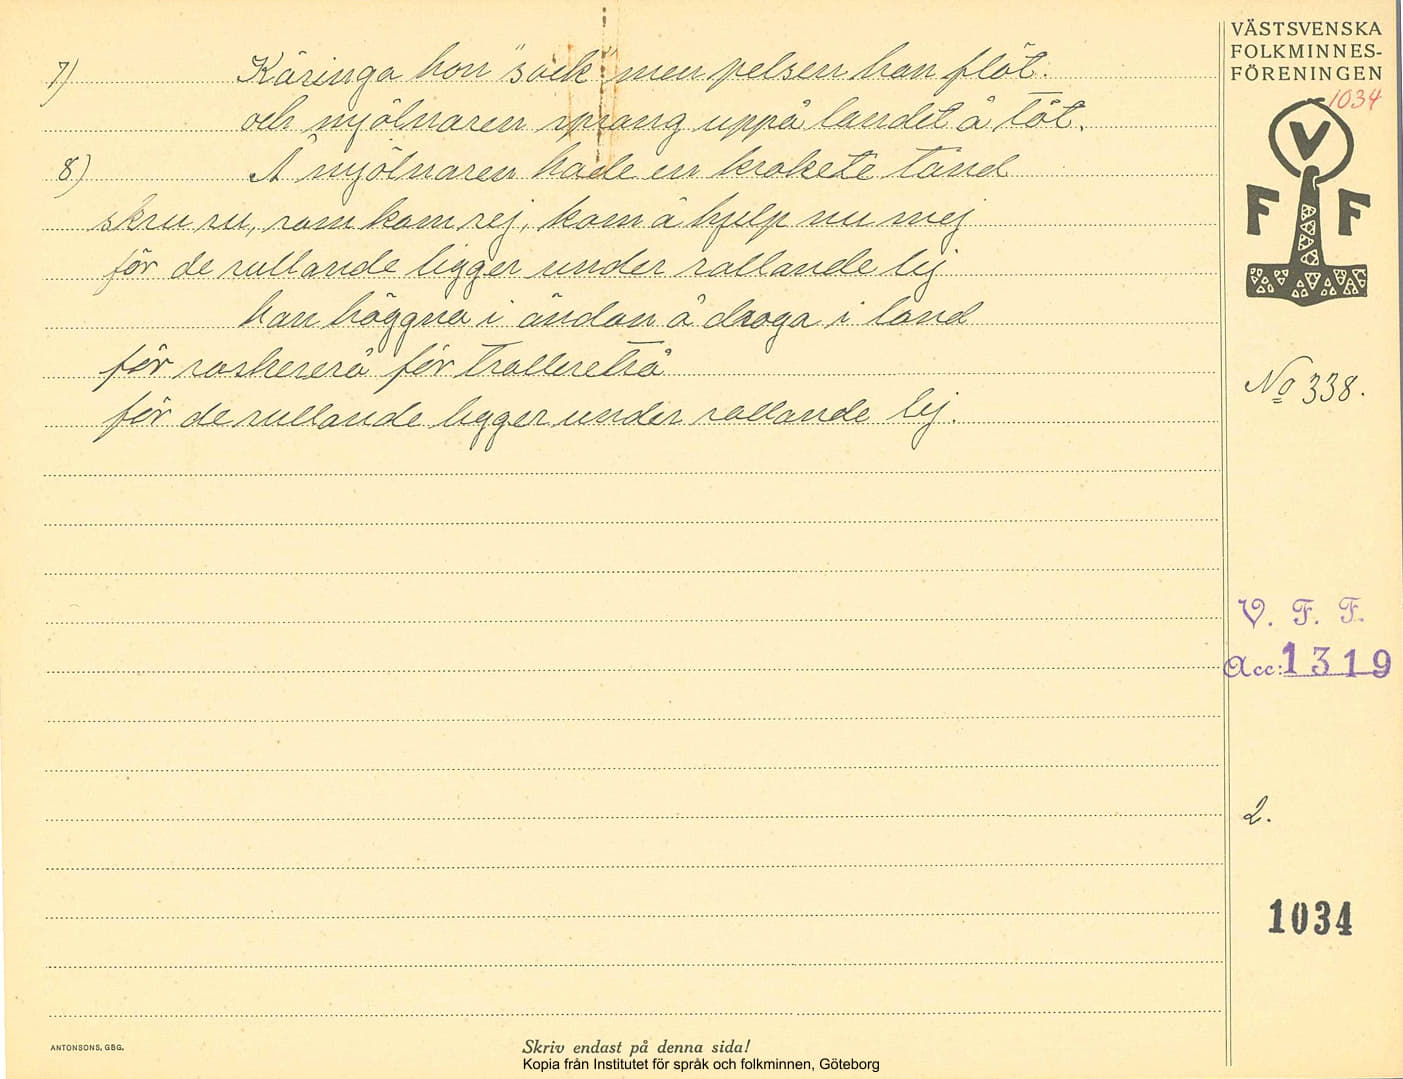 VÄSTSVENSKA
FOLKMINNES-
FÖRENINGEN
1034
V
F F
7) Käringa hon "sack" men pelsen han flöt.
och mjölnaren sprang uppå landet å töt.
8) Å mjölnaren hade en krokete tand
skru ru, som kom rej, kom å hjelp nu mej
för de rullande ligger under rallande lej
han höggna i ändan å droga i land
för
för de rullande ligger under rallande lej.
No 338.
V. F. F.
Acc: 1319
2.
1034
ANTONSONS, GBG.
Skriv endast på denna sida!
Kopia från Institutet för språk och folkminnen, Göteborg